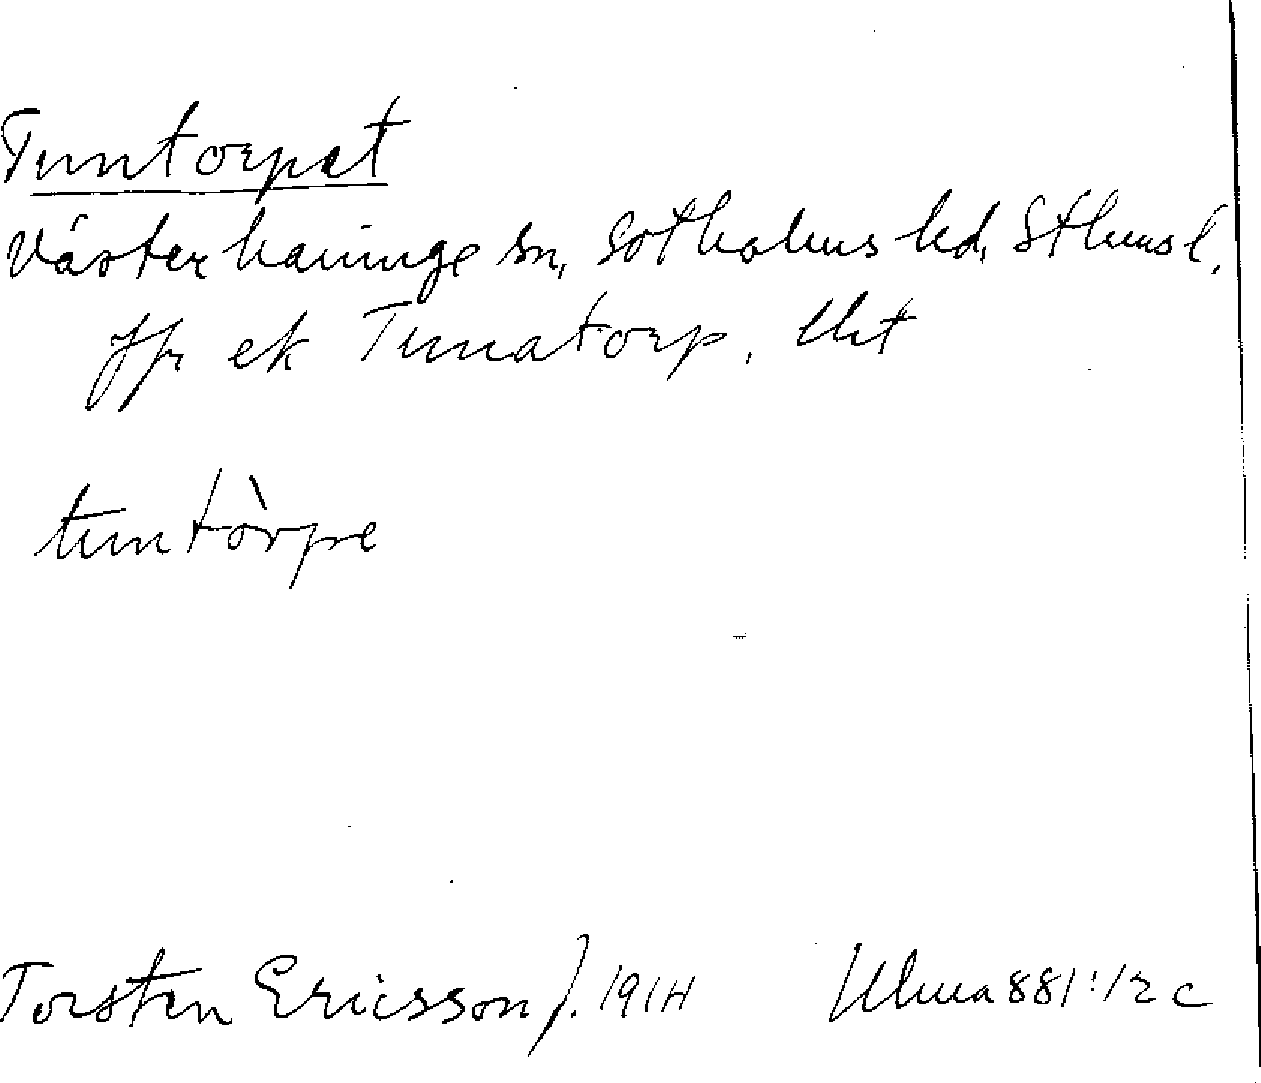 Tuntorpet
Västerhaninge sn, Sotholms hd, Sthms l.
Jfr ek Tunatorp.
tuntòrpe
Torsten Ericsson f. 1914 Ulma 881:12 c